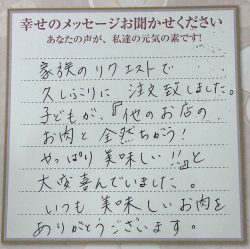 幸せのメッセージお聞かせください
あなたの声が、私達の元気の素です!
家族のリクエストで
久しぶりに 注文致しました。
子どもが、『他のお店の
お肉と 全然ちがう!
やっぱり美味しい!!』と
大変喜んでいました。
いつも 美味しいお肉を
ありがとうございます。